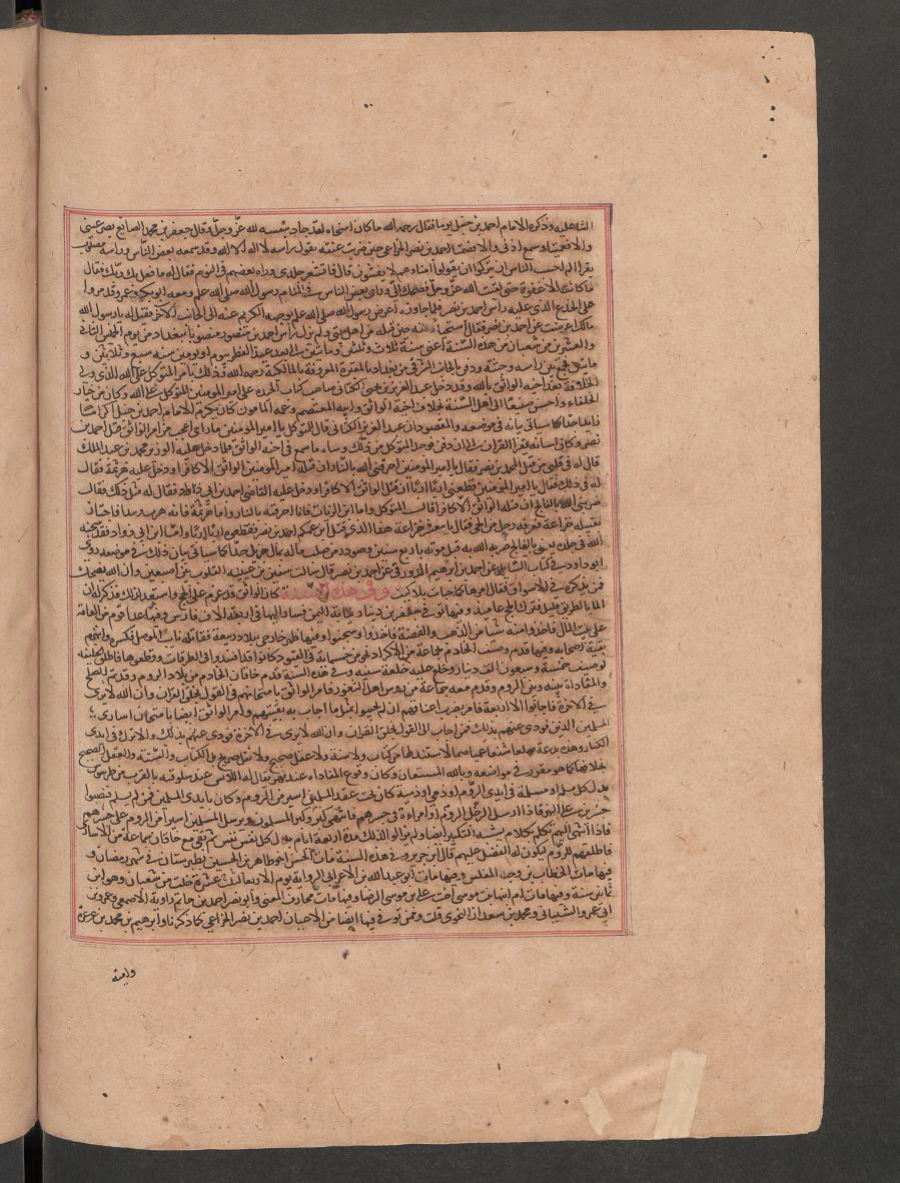 الشاهلية وذكره الامام احمد بن حنبل يوما فقال رحمه الله ما كان اسخاه لقد جاد بنفسه لله عز وجل وقال جعفر بن محمد الصائغ بصر عيني
والا فعميتا وسمع اذني والا فصمتا احمد بن نصر الخزاعي حين ضربت عنقه يقول راسه لا اله الا الله وقد سمعه بعض الناس وراسه مصلوب
يقرا الم احسب الناس ان يتركوا ان يقولوا امنا وهم لا يفتنون قال فاقشعر جلدي وراه بعضهم في النوم فقال له ما فعل بك ربك فقال
ما كانت الا غفوة حتى لقيت الله عز وجل فضحك الي وراى بعض الناس في المنام رسول الله صلى الله عليه وسلم ومعه ابو بكر وعمر وقد مروا
على الجذع الذي عليه راس احمد بن نصر فلما جاوزه اعرض رسول الله صلى الله عليه وسلم بوجهه الكريم عنه الى الجانب الاخر فقيل له يا رسول الله
مالك اعرضت عن احمد بن نصر فقال استحياء منه حين قتله من اهل بيتي ولم يزل راس احمد بن نصر منصوبا ببغداد من يوم الخميس الثامن
والعشرين من شعبان من هذه السنة اعني سنة ثلاث وثلثين ومائتين الى بعد عيد الفطر بيوم او يومين سنه سبع وثلاثين و
مايتين فجمع بين راسه وجثته ودفن بالجانب الشرقي من بغداد بالمقبرة المعروفة بالمالكية رحمه الله وذلك بامر المتوكل على الله الذي ولي
الخلافة بعد اخيه الواثق بالله وقد دخل عبد العزيز بن يحيى الكتاني صاحب كتاب الحيده على امير المومنين المتوكل على الله وكان من خيار
الخلفاء واحسن صنيعا الى اهل السنة بخلاف اخيه الواثق وابيه المعتصم وعمه المامون كان يكرم الامام احمد بن حنبل اكراما
زايدا جدا كما سياتي بيانه في موضعه والمقصود ان عبد العزيز الكتاني قال للمتوكل يا امير المومنين ما راى اعجب من امر الواثق قتل احمد بن
نصر وكان لسانه يقرا القران الى ان دفن فوجد المتوكل من ذلك وساءه ما سمع في اخيه الواثق فلما دخل عليه الوزير محمد بن عبد الملك
قال له في قلبي من قتل احمد بن نصر فقال يا امير المومنين احرقني الله بالنار ان قتله امير المومنين الواثق الا كافرا ودخل عليه هرثمة فقال
له في ذلك فقال يا امير المومنين قطعني الله اربا اربا ان قتل الواثق الا كافرا ودخل عليه القاضي احمد بن ابي دواد فقال له مثل ذلك فقال
ضربني الله بالفالج ان قتله الواثق الا كافرا قال المتوكل واما ابن الزيات فانا احرقته بالنار واما هرثمة فانه هرب وتبدا فاجتاز
بقبيلة خزاعة فعرفه رجل من الحي فقال يا معشر خزاعة هذا الذي قتل ابن عمكم احمد بن نصر فقطعوه اربا اربا واما ابن ابي دواد فقد سجنه
الله في جلده يعني بالفالج ضربه الله به قبل موته باربع سنين وصودر من صلب ماله بمال جزيل جدا كما سياتي بيان ذلك في موضعه وروى
ابو داود في كتاب السابل عن احمد بن ابراهيم الدورقي عن احمد بن نصر قال سالت سفين بن عيينة القلوب بين اصبعين وان الله يضحك
ممن يذكره في الاسواق فقال امروها كما جات بلا كيف وفي هذه السنة كان الواثق قد عزم على الحج واستعد لذلك فذكر له ان
الما بالطريق قليل فترك الحج عاميذ وفيها تولى جعفر بن دينار نيابة اليمن فسار اليها في اربعة الاف فارس وفيها عدا قوم من العامة
على بيت المال فاخذوا منه شيا من الذهب والفضة فاخذوا وسجنوا وفيها ظهر خارجي ببلاد ربيعة فقاتله نايب الموصل فكسره وانهزم
بقية اصحابه وفيها قدم وصيف الخادم بجماعة من الاكراد نحو من خمسمائة في القيود كانوا قد افسدوا في الطرقات وقطعوها فاطلق الخليفة
لوصيف خمسة وسبعون الف دينار وخلع عليه خلعة سنية وفي هذه السنة قدم خاقان الخادم من بلاد الروم وقد تم الصلح
والمفاداة بينه وبين الروم وقدم معه جماعة من روس اهل الثغور فامر الواثق بامتحانهم في القول بخلق القران وان الله لا يرى
في الاخرة فاجابوا الا اربعة فامر بضرب اعناقهم ان لم يجيبوا بمثل ما اجاب به بقيتهم وامر الواثق ايضا بامتحان اسارى
المسلمين الذين فودي عنهم بذلك فمن اجاب الى القول بخلق القران وان الله لا يرى في الاخرة فودي عنهم بذلك والا ترك في ايدي
الكفار وهذه بدعة صلعا شنعا عميا صما لا مستند لها من كتاب ولا سنة ولا عقل صحيح ولا نقل صريح بل الكتاب والسنة والعقل الصحيح
بخلافها كما هو مقرر في مواضعه وبالله المستعان وكان وقوع المفاداة عند نهر يقال له اللامس عند سلوقية بالقرب من طرسوس
بدل كل مسلم او مسلمة في ايدي الروم او ذمي او ذمية كان تحت عقد المسلمين اسير من الروم وكان بايدي المسلمين فمن لم يسلم فنصبوا
جسرين على النهر فاذا ارسل الرجل الروم او امراة في جسرهم فانتهى كبر وكبر المسلمون ويرسل المسلمين اسيرا من الروم على جسرهم
فاذا انتهى اليهم تكلم بكلام يشبه التكبير ايضا ولم يزالو كذلك مدة اربعة ايام بدل كل نفس نفس ثم بقي مع خاقان جماعة من الاسارى
فاطلقهم للروم ليكون له الفضل عليهم قال ابن جرير وفي هذه السنة مات الحسن اخو طاهر بن الحسين بطبرستان في شهر رمضان و
فيها مات الخطاب بن وجه الفلس وفيها مات ابو عبد الله بن الاعرابي الراوية يوم الاربعاء لثلث عشرة خلت من شعبان وهو ابن
ثمانين سنة وفيها مات ام ابيها بنت موسى اخت علي بن موسى الرضا وفيها مات مخارق المغني وابو نصر احمد بن حاتم راوية الاصمعي وعمرو بن
ابي عمرو الشيباني ومحمد بن سعدان النحوي قلت وممن توفي فيها ايضا من الاعيان احمد بن نصر الخزاعي كما ذكرنا وابرهيم بن محمد بن عرعرة
وامية